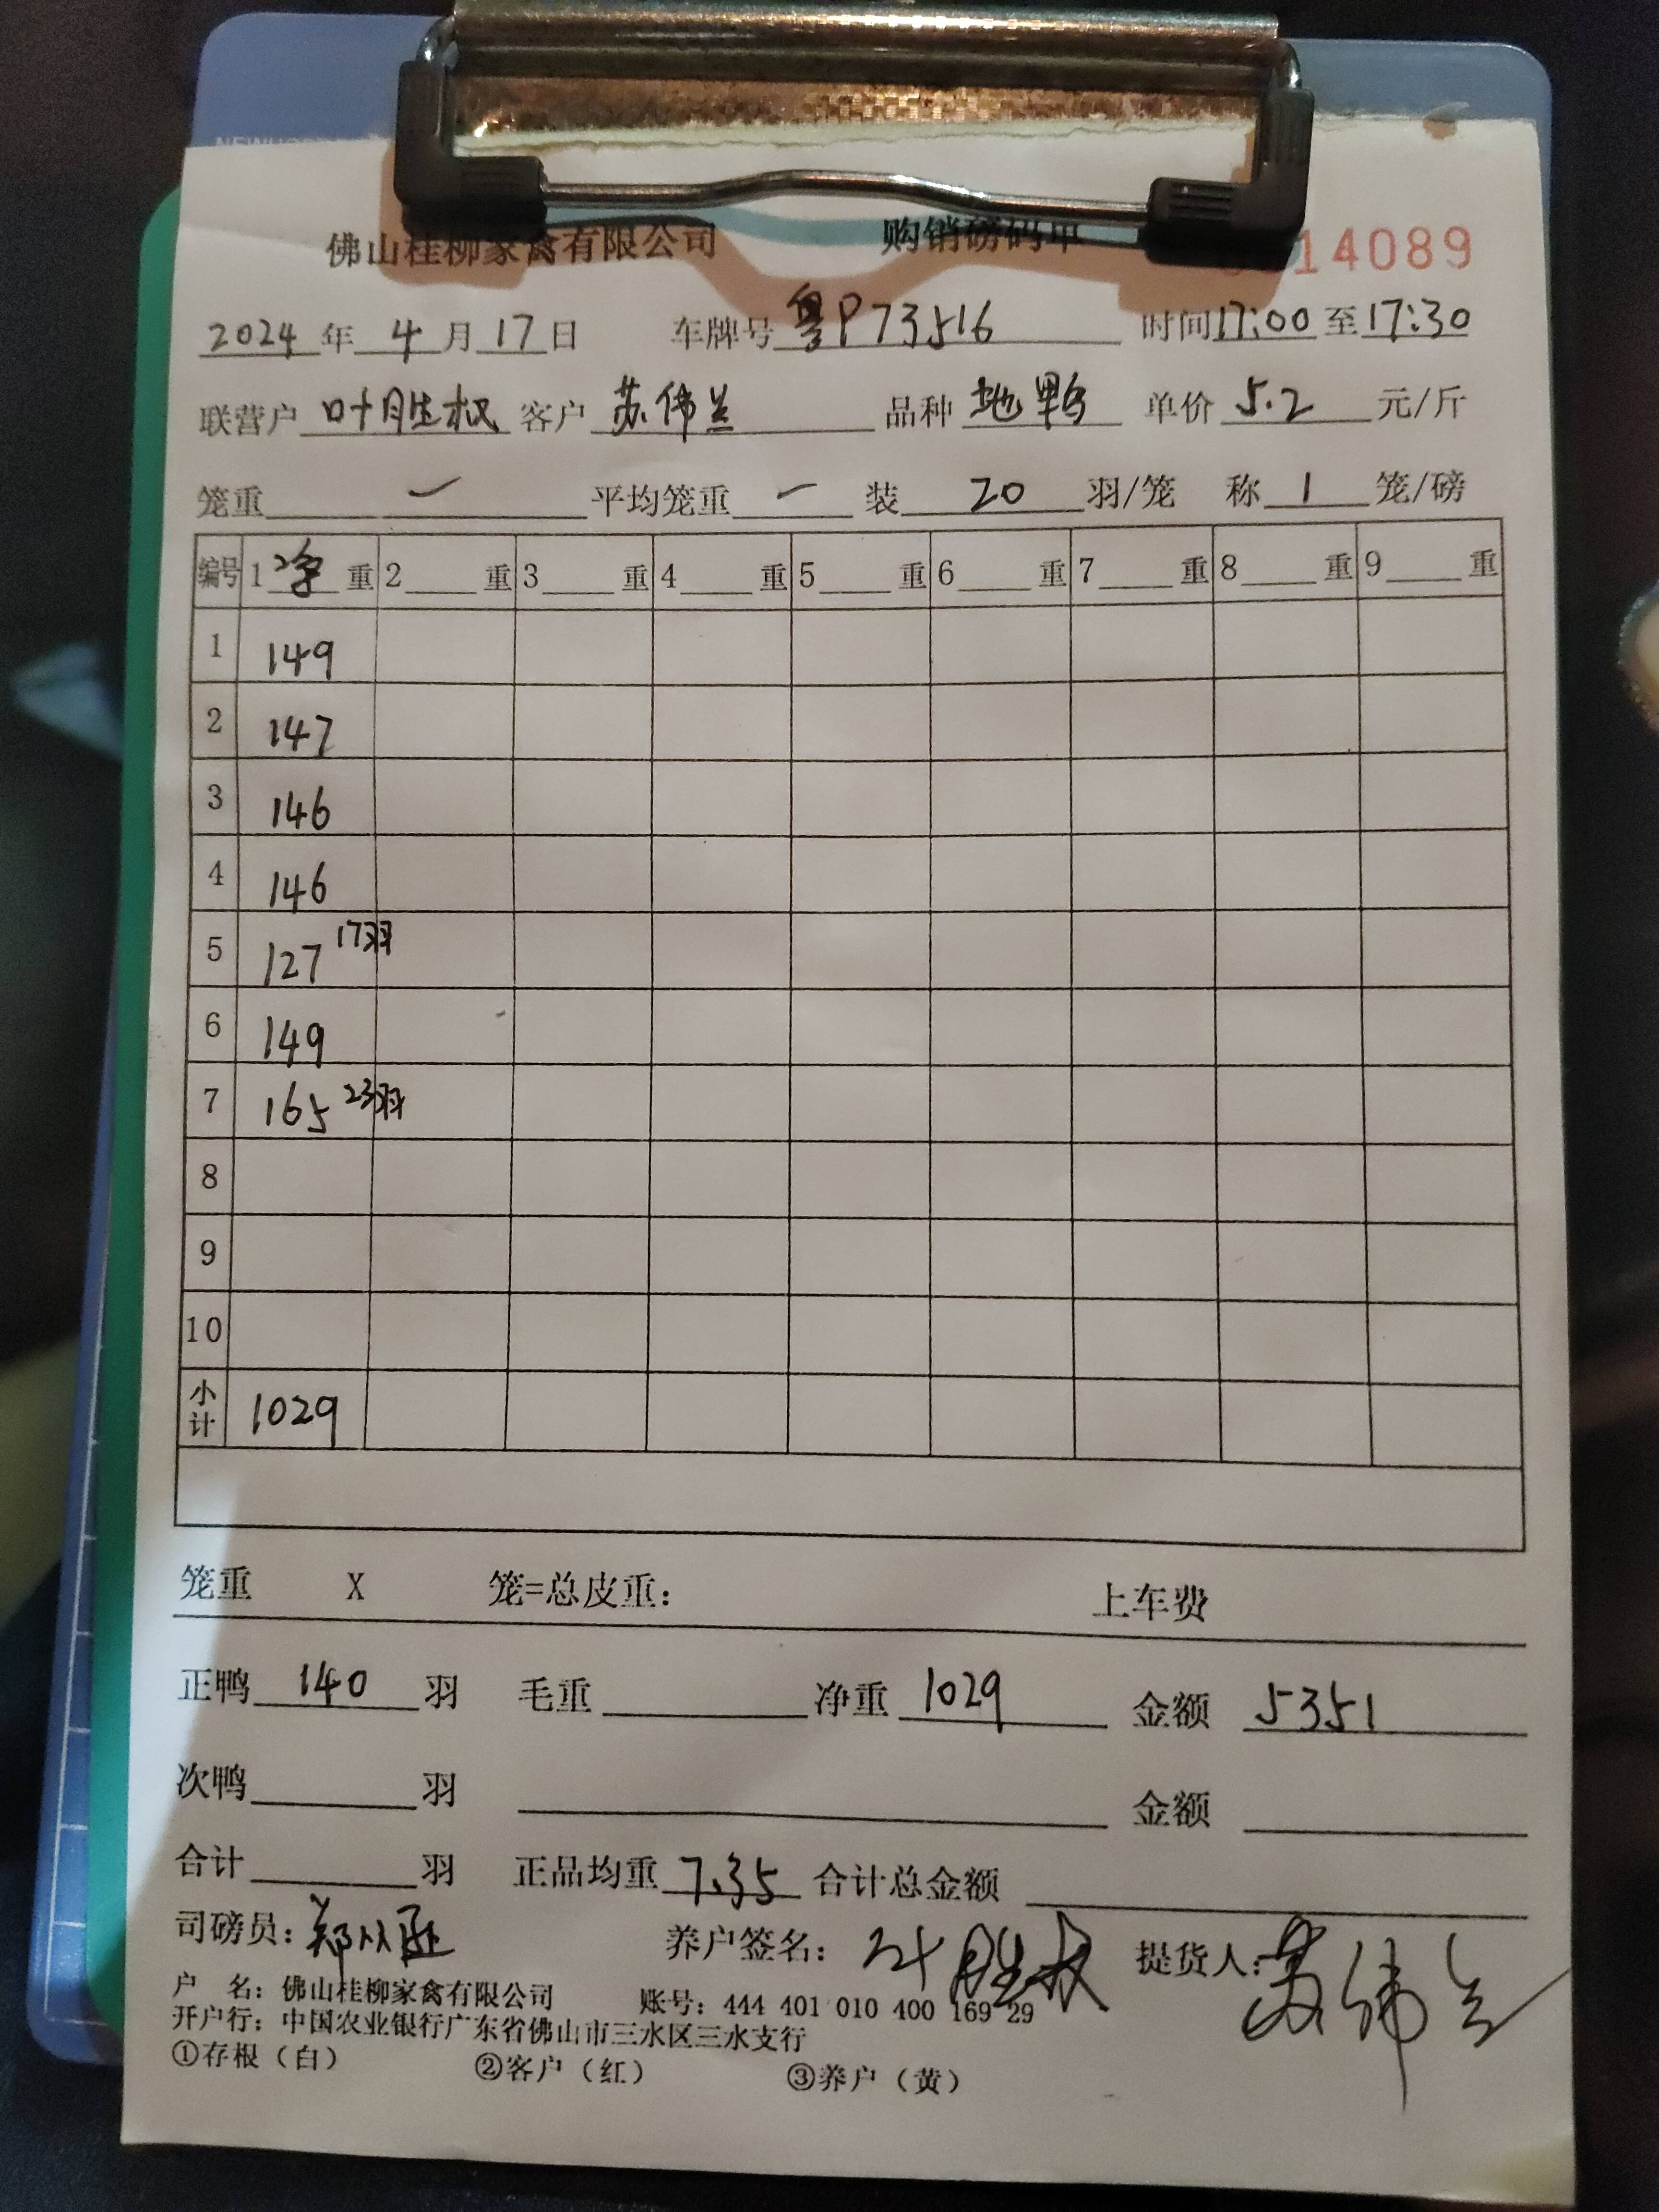 佛山桂柳家禽有限公司 购销磅码单 14089
2024年4月17日 车牌号粤P73516 时间17:00至17:30
联营户叶胜权 客户苏伟兰 品种地鸭 单价5.2元/斤
笼重 平均笼重 装20羽/笼 称1笼/磅
编号 1净重 2 重 3 重 4 重 5 重 6 重 7 重 8 重 9 重
1 149
2 147
3 146
4 146
5 127 17羽
6 149
7 165 23羽
8
9
10
小计 1029
笼重 X 笼=总皮重: 上车费
正鸭140羽 毛重 净重1029 金额5351
次鸭 羽 金额
合计 羽 正品均重7.35 合计总金额
司磅员: 养户签名:叶胜权 提货人:苏伟兰
户 名: 佛山桂柳家禽有限公司 账号: 444 401 010 400 169 29
开户行: 中国农业银行广东省佛山市三水区三水支行
①存根(白) ②客户(红) ③养户(黄)